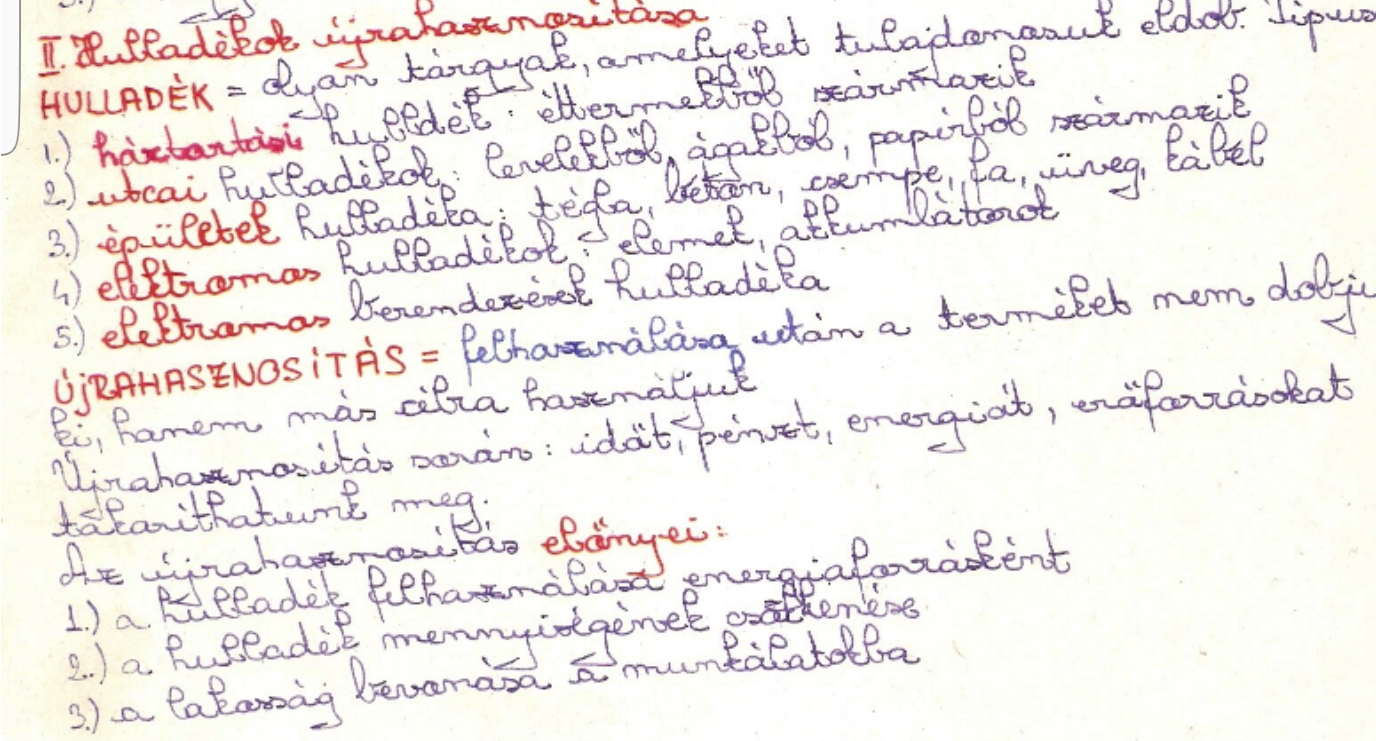 II. Hulladékok újrahasznosítása
HULLADÉK = olyan tárgyak, amelyeket tulajdonosuk eldob. Típus
1.) háztartási hulldék: éttermekből származik
2.) utcai hulladékok: levelekből, ágakból, papírból származik
3.) épületek hulladéka: tégla, beton, csempe, fa, üveg, kábel
4.) elektromos hulladékok: elemek, akkumlátorok
5.) elektromos berendezések hulladéka
ÚJRAHASZNOSÍTÁS = felhasználása után a terméket nem dobju
ki, hanem más célra használjuk
Újrahasznosítás során: időt, pénzt, energiát, erőforrásokat
takaríthatunk meg.
Az újrahasznosítás előnyei:
1.) a hulladék felhasználása energiaforrásként
2.) a hulladék mennyiségének csökkenése
3.) a lakosság bevonása a munkálatokba